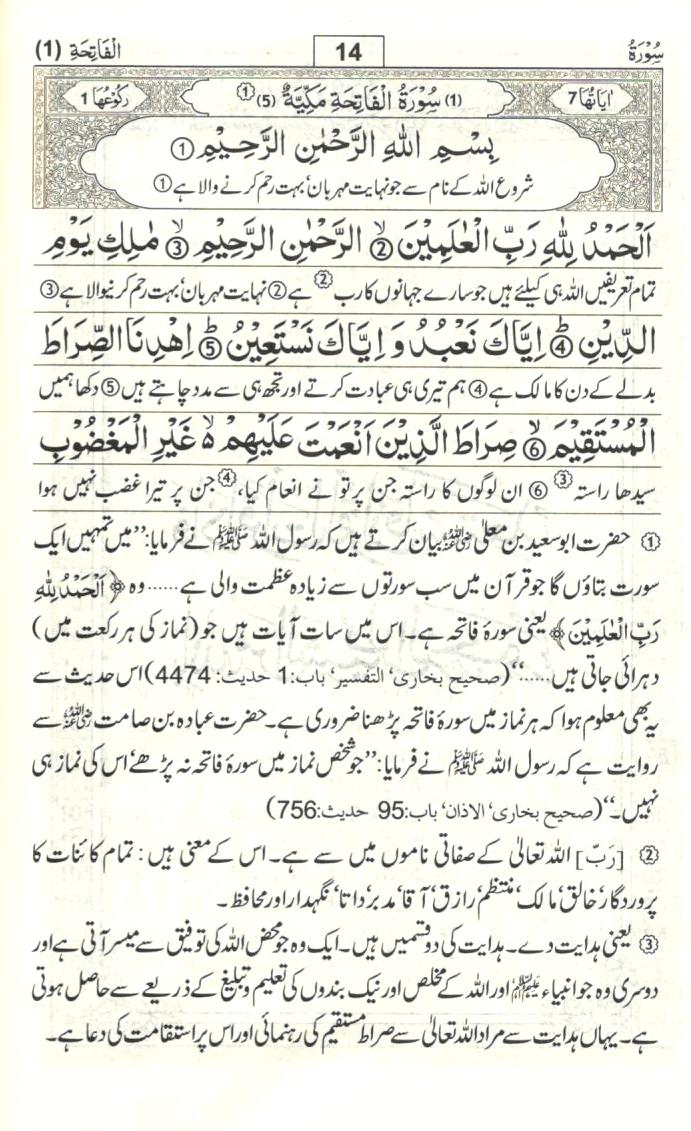 سُوْرَةُ 14 الْفَاتِحَةِ (1)
اٰيَاتُهَا 7 (1) سُوْرَةُ الْفَاتِحَةِ مَكِّيَّةٌ (5) ① رُكُوْعُهَا 1
بِسْمِ اللهِ الرَّحْمٰنِ الرَّحِيْمِ ①
شروع اللہ کے نام سے جو نہایت مہربان، بہت رحم کرنے والا ہے ①
اَلْحَمْدُ لِلّٰهِ رَبِّ الْعٰلَمِيْنَ ② الرَّحْمٰنِ الرَّحِيْمِ ③ مٰلِكِ يَوْمِ
تمام تعریفیں اللہ ہی کیلئے ہیں جو سارے جہانوں کا رب ② ہے ② نہایت مہربان، بہت رحم کرنیوالا ہے ③
الدِّيْنِ ④ اِيَّاكَ نَعْبُدُ وَ اِيَّاكَ نَسْتَعِيْنُ ⑤ اِهْدِنَا الصِّرَاطَ
بدلے کے دن کا مالک ہے ④ ہم تیری ہی عبادت کرتے اور تجھ ہی سے مدد چاہتے ہیں ⑤ دکھا ہمیں
الْمُسْتَقِيْمَ ⑥ صِرَاطَ الَّذِيْنَ اَنْعَمْتَ عَلَيْهِمْ ۵ غَيْرِ الْمَغْضُوْبِ
سیدھا راستہ ③ ⑥ ان لوگوں کا راستہ جن پر تو نے انعام کیا، ④ جن پر تیرا غضب نہیں ہوا
① حضرت ابو سعید بن معلٰی رضی اللہ عنہ بیان کرتے ہیں کہ رسول اللہ ﷺ نے فرمایا: ”میں تمہیں ایک
سورت بتاؤں گا جو قرآن میں سب سورتوں سے زیادہ عظمت والی ہے ...... وہ ﴿اَلْحَمْدُ لِلّٰهِ
رَبِّ الْعٰلَمِيْنَ﴾ یعنی سورۂ فاتحہ ہے۔ اس میں سات آیات ہیں جو (نماز کی ہر رکعت میں)
دہرائی جاتی ہیں ......“ (صحیح بخاری، التفسیر، باب:1 حدیث: 4474) اس حدیث سے
یہ بھی معلوم ہوا کہ ہر نماز میں سورۂ فاتحہ پڑھنا ضروری ہے۔ حضرت عبادہ بن صامت رضی اللہ عنہ سے
روایت ہے کہ رسول اللہ ﷺ نے فرمایا: ”جو شخص نماز میں سورۂ فاتحہ نہ پڑھے، اس کی نماز ہی
نہیں۔“ (صحیح بخاری، الاذان، باب:95 حدیث:756)
② [رَبّ] اللہ تعالیٰ کے صفاتی ناموں میں سے ہے۔ اس کے معنی ہیں: تمام کائنات کا
پروردگار، خالق، مالک، منتظم، رازق، آقا، مدبر، داتا، نگہدار اور محافظ۔
③ یعنی ہدایت دے۔ ہدایت کی دو قسمیں ہیں۔ ایک وہ جو محض اللہ کی توفیق سے میسر آتی ہے اور
دوسری وہ جو انبیاء علیہم السلام اور اللہ کے مخلص اور نیک بندوں کی تعلیم و تبلیغ کے ذریعے سے حاصل ہوتی
ہے۔ یہاں ہدایت سے مراد اللہ تعالیٰ سے صراط مستقیم کی رہنمائی اور اس پر استقامت کی دعا ہے۔